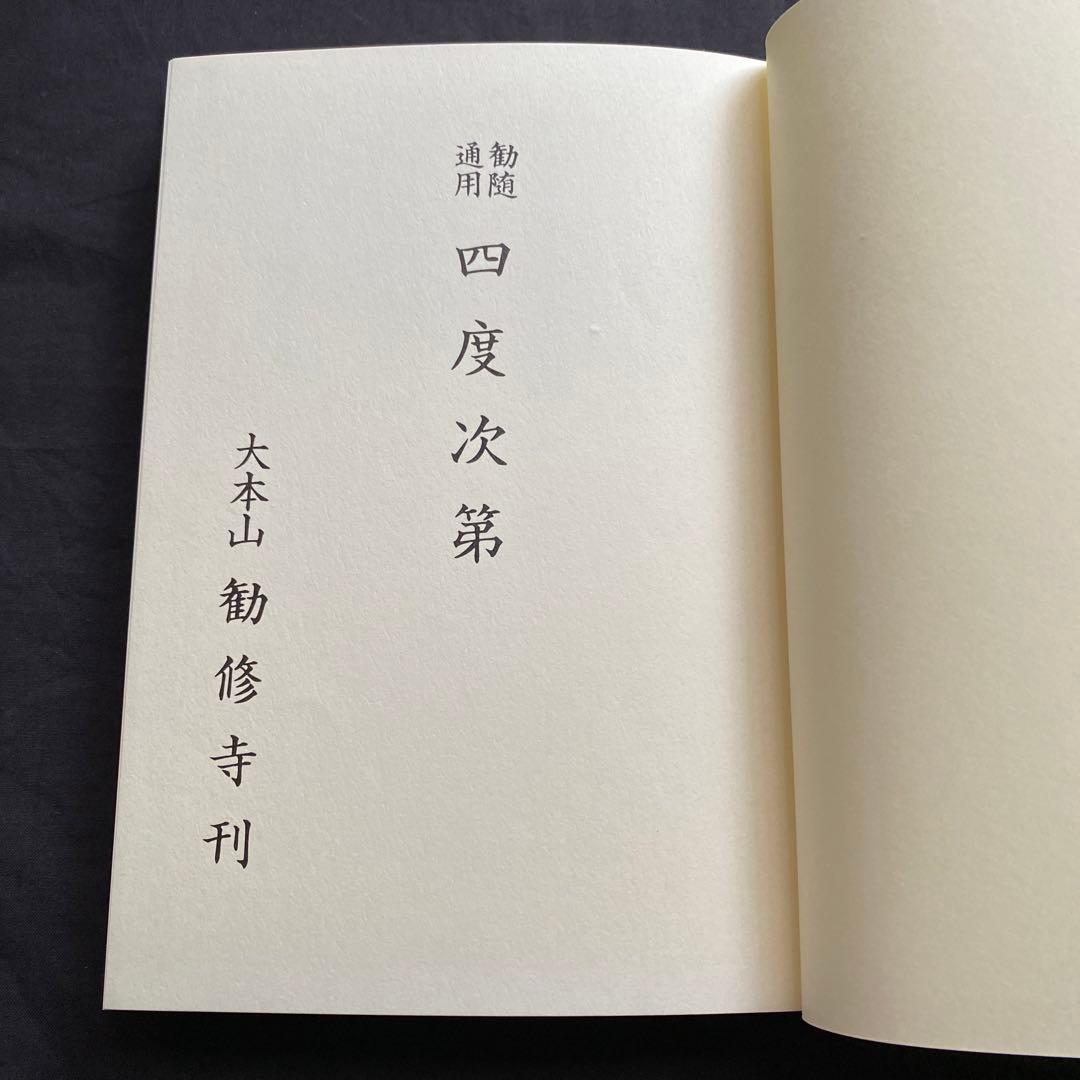 勧随
通用
四度次第
大本山 勧修寺刊